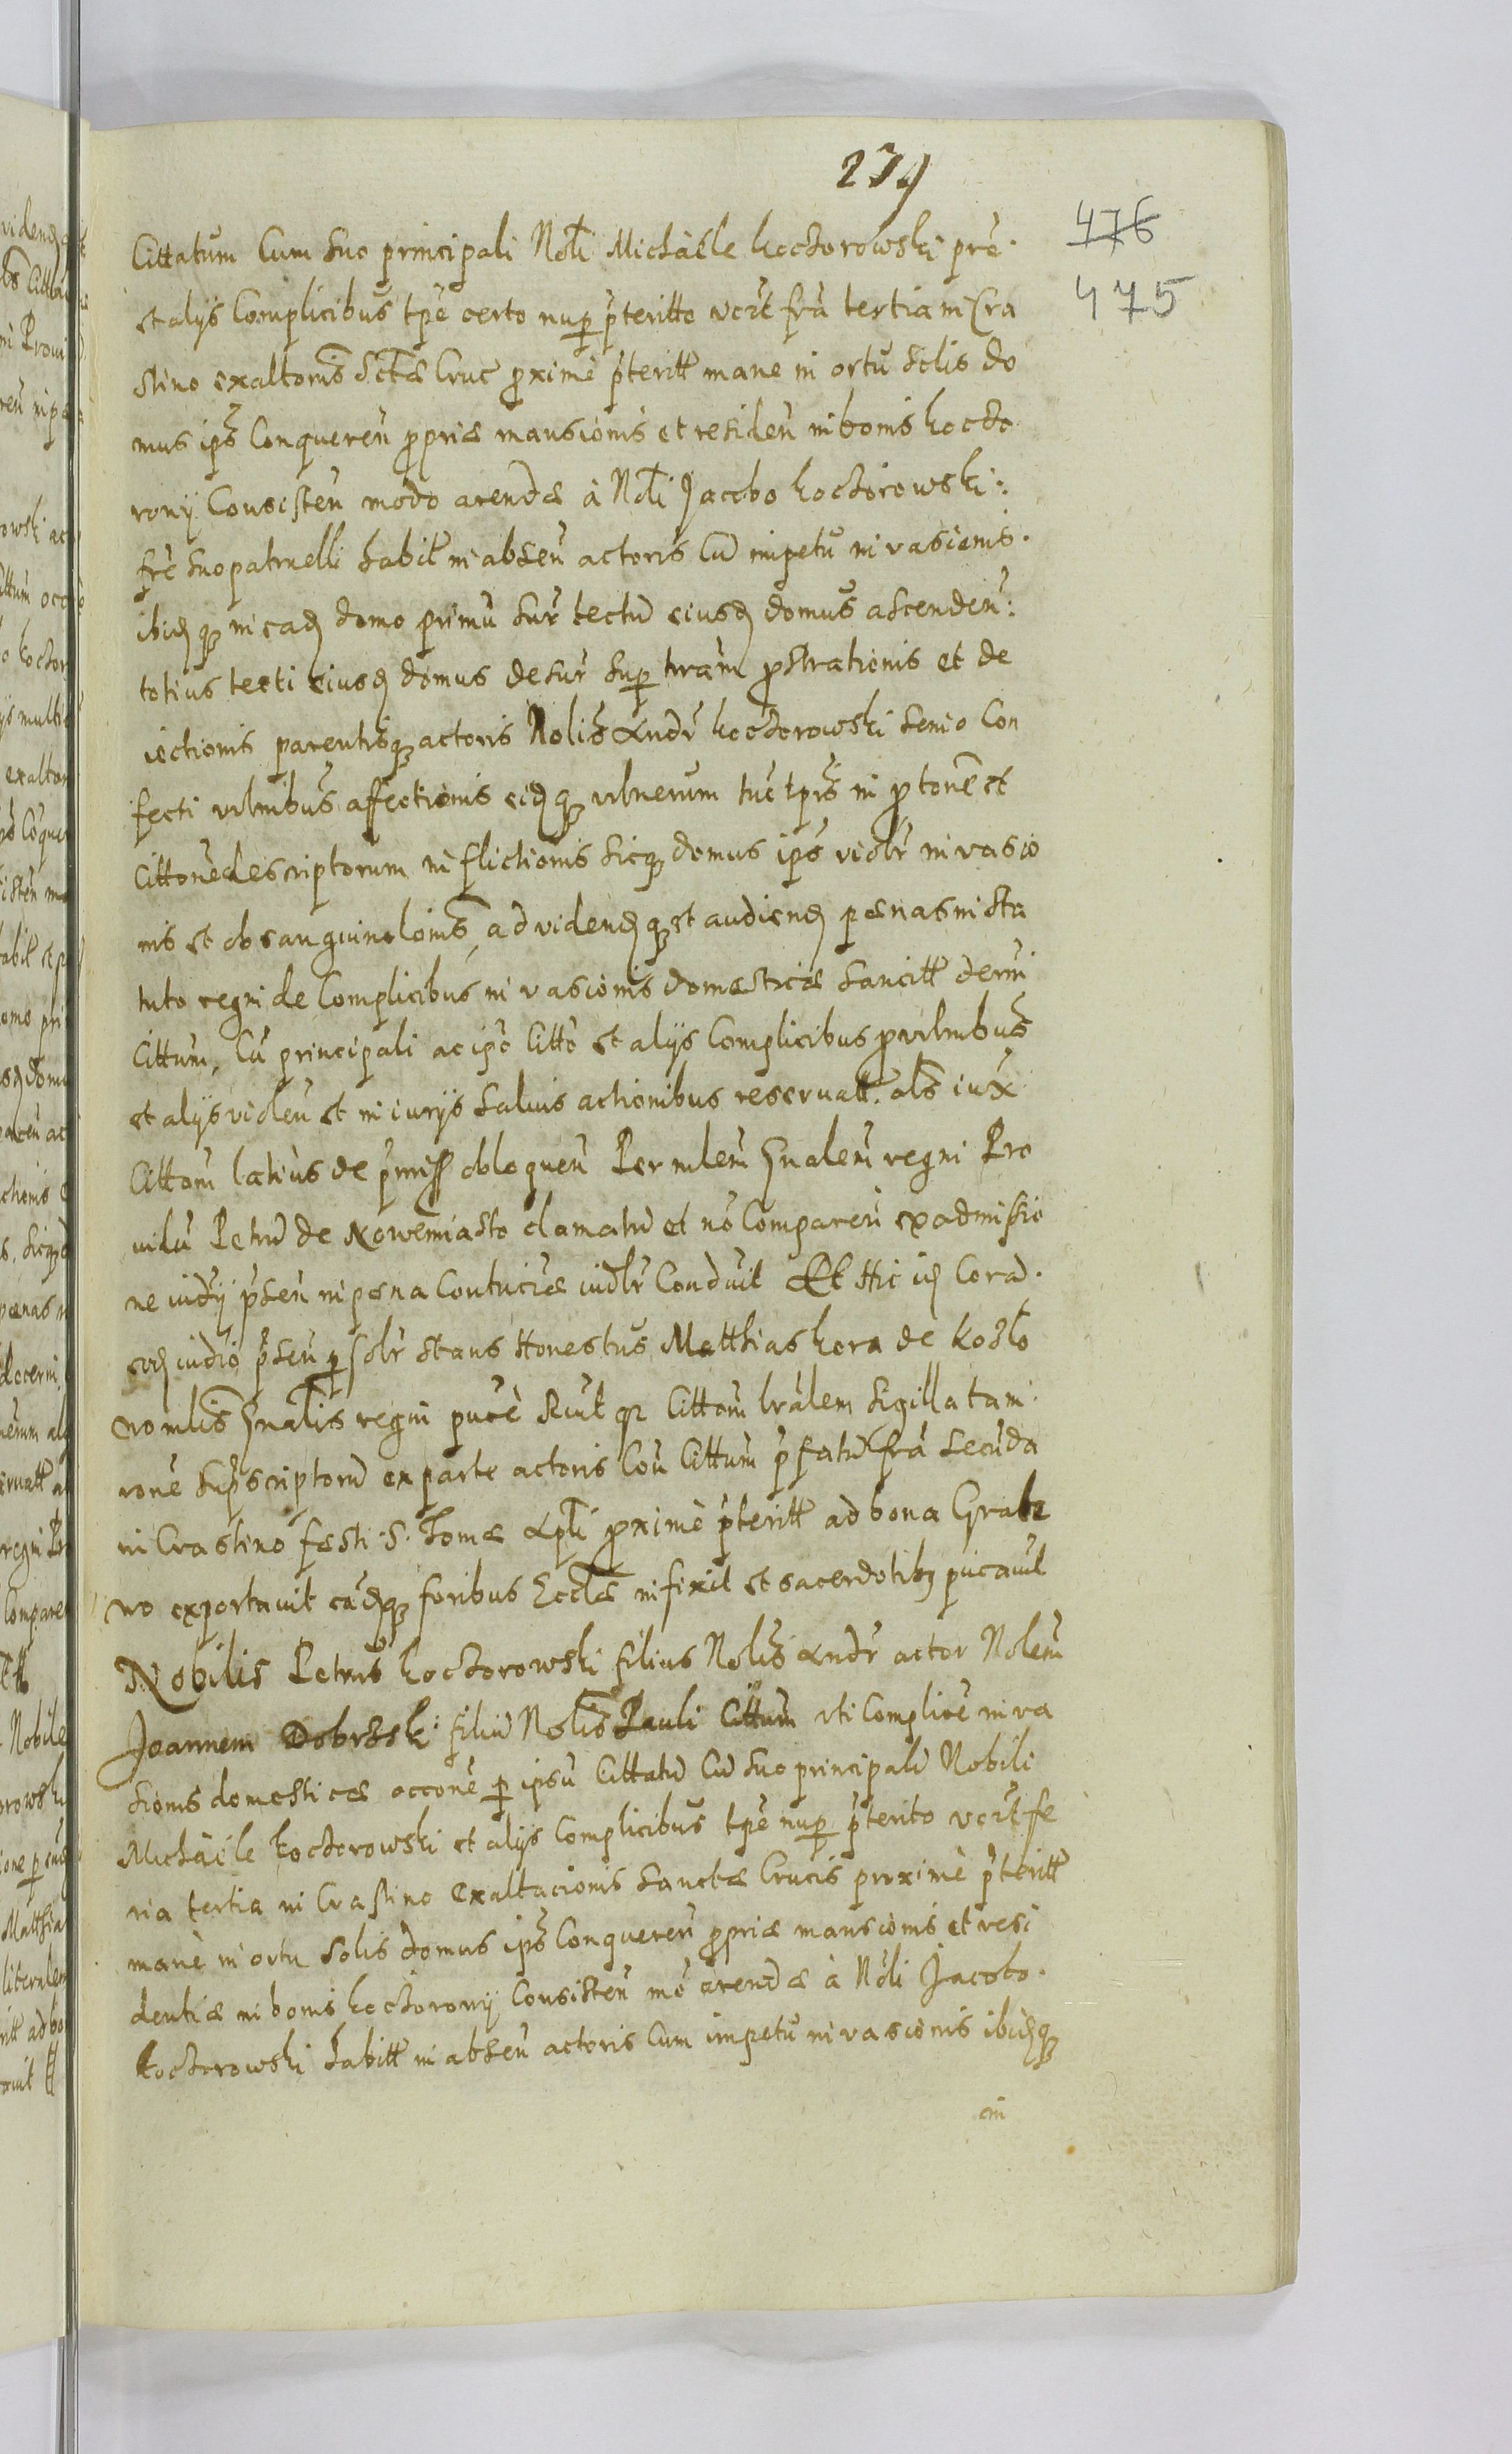 279
476
475
Cittatum Cum suo principali Nobli Michaele Kochorowski prē.
et alijs Complicibus tpē certo nup pteritto vert fra tertia in Cra
stino exaltonis Sctae Cruc proximè pteritt mane in ortu solis do
mus ips Conqueren propriae mansionis et residen in bonis Kocho
rowy Consisten modo arendae à Nobli Jacobo Kochorowski:
fre suo patruelli habit in absen actoris Cu impetu invasionis.
ibidq in ead domo primu sur tectu eiusd domus ascenden:
totius tecti eiusd domus desur sup terram prostrationis et de
iectionis parentisq actoris Nolis Andr Kochorowski senio Con
fecti vulnibus affectionis eidq vulnerum tuc tpris in protone et
Cittone descriptorum inflictionis sicq domus ips violr invasio
nis et ob sanguinolonis ad videndq et audiend paenas in sta
tuto regni de Complicibus invasionis domesticae sancitt derni
Cittum, Cu principali ac ipo Citto et alijs Complicibus pro vulnibus
et alijs violen et iniurijs salvis actionibus reservatt. als iux
Cittom latius de pmiss obloquen Per mlem gnalem regni Pro
vidu Petru de Nowemiasto clamatu et no Comparen ex admissio
ne iudij psen in pena Contuciae iudlr Conduit Et Hic id Cora.
eod iudio psen p solr stans Honestus Matthias Kora de Kozlo
wo mlis gnalis regni puce Rcut qr Cittom lralem sigillatam
rone supscriptoru ex parte actoris Cou Cittum pfatu fra secuda
in Crastino festi S. Tomae Apli proximè pteritt ad bona Grabo
wo exportavit eadq foribus Ecclae infixit et sacerdotibq puicavit
Nobilis Petrus Kochorowski filius Nolis Andr actor Nolem
Joannem Dobrzski filiu Nolis Pauli Cittum uti Complice inva
sionis domesticae occone p ipsu Cittatu Cu suo principali Nobili
Michaele Kochorowski et alijs Complicibus tpe nup pterito vert fe
ria tertia in Crastino Exaltacionis Sanctae Crucis proximè pteritt
manè in ortu solis domus ips Conqueren propriae mansionis et resi
dentiae in bonis Kochorowy Consisten mo arendae à Nobli Jacobo.
Kochorowski habitt in absen actoris Cum impetu invasionis ibidq
in